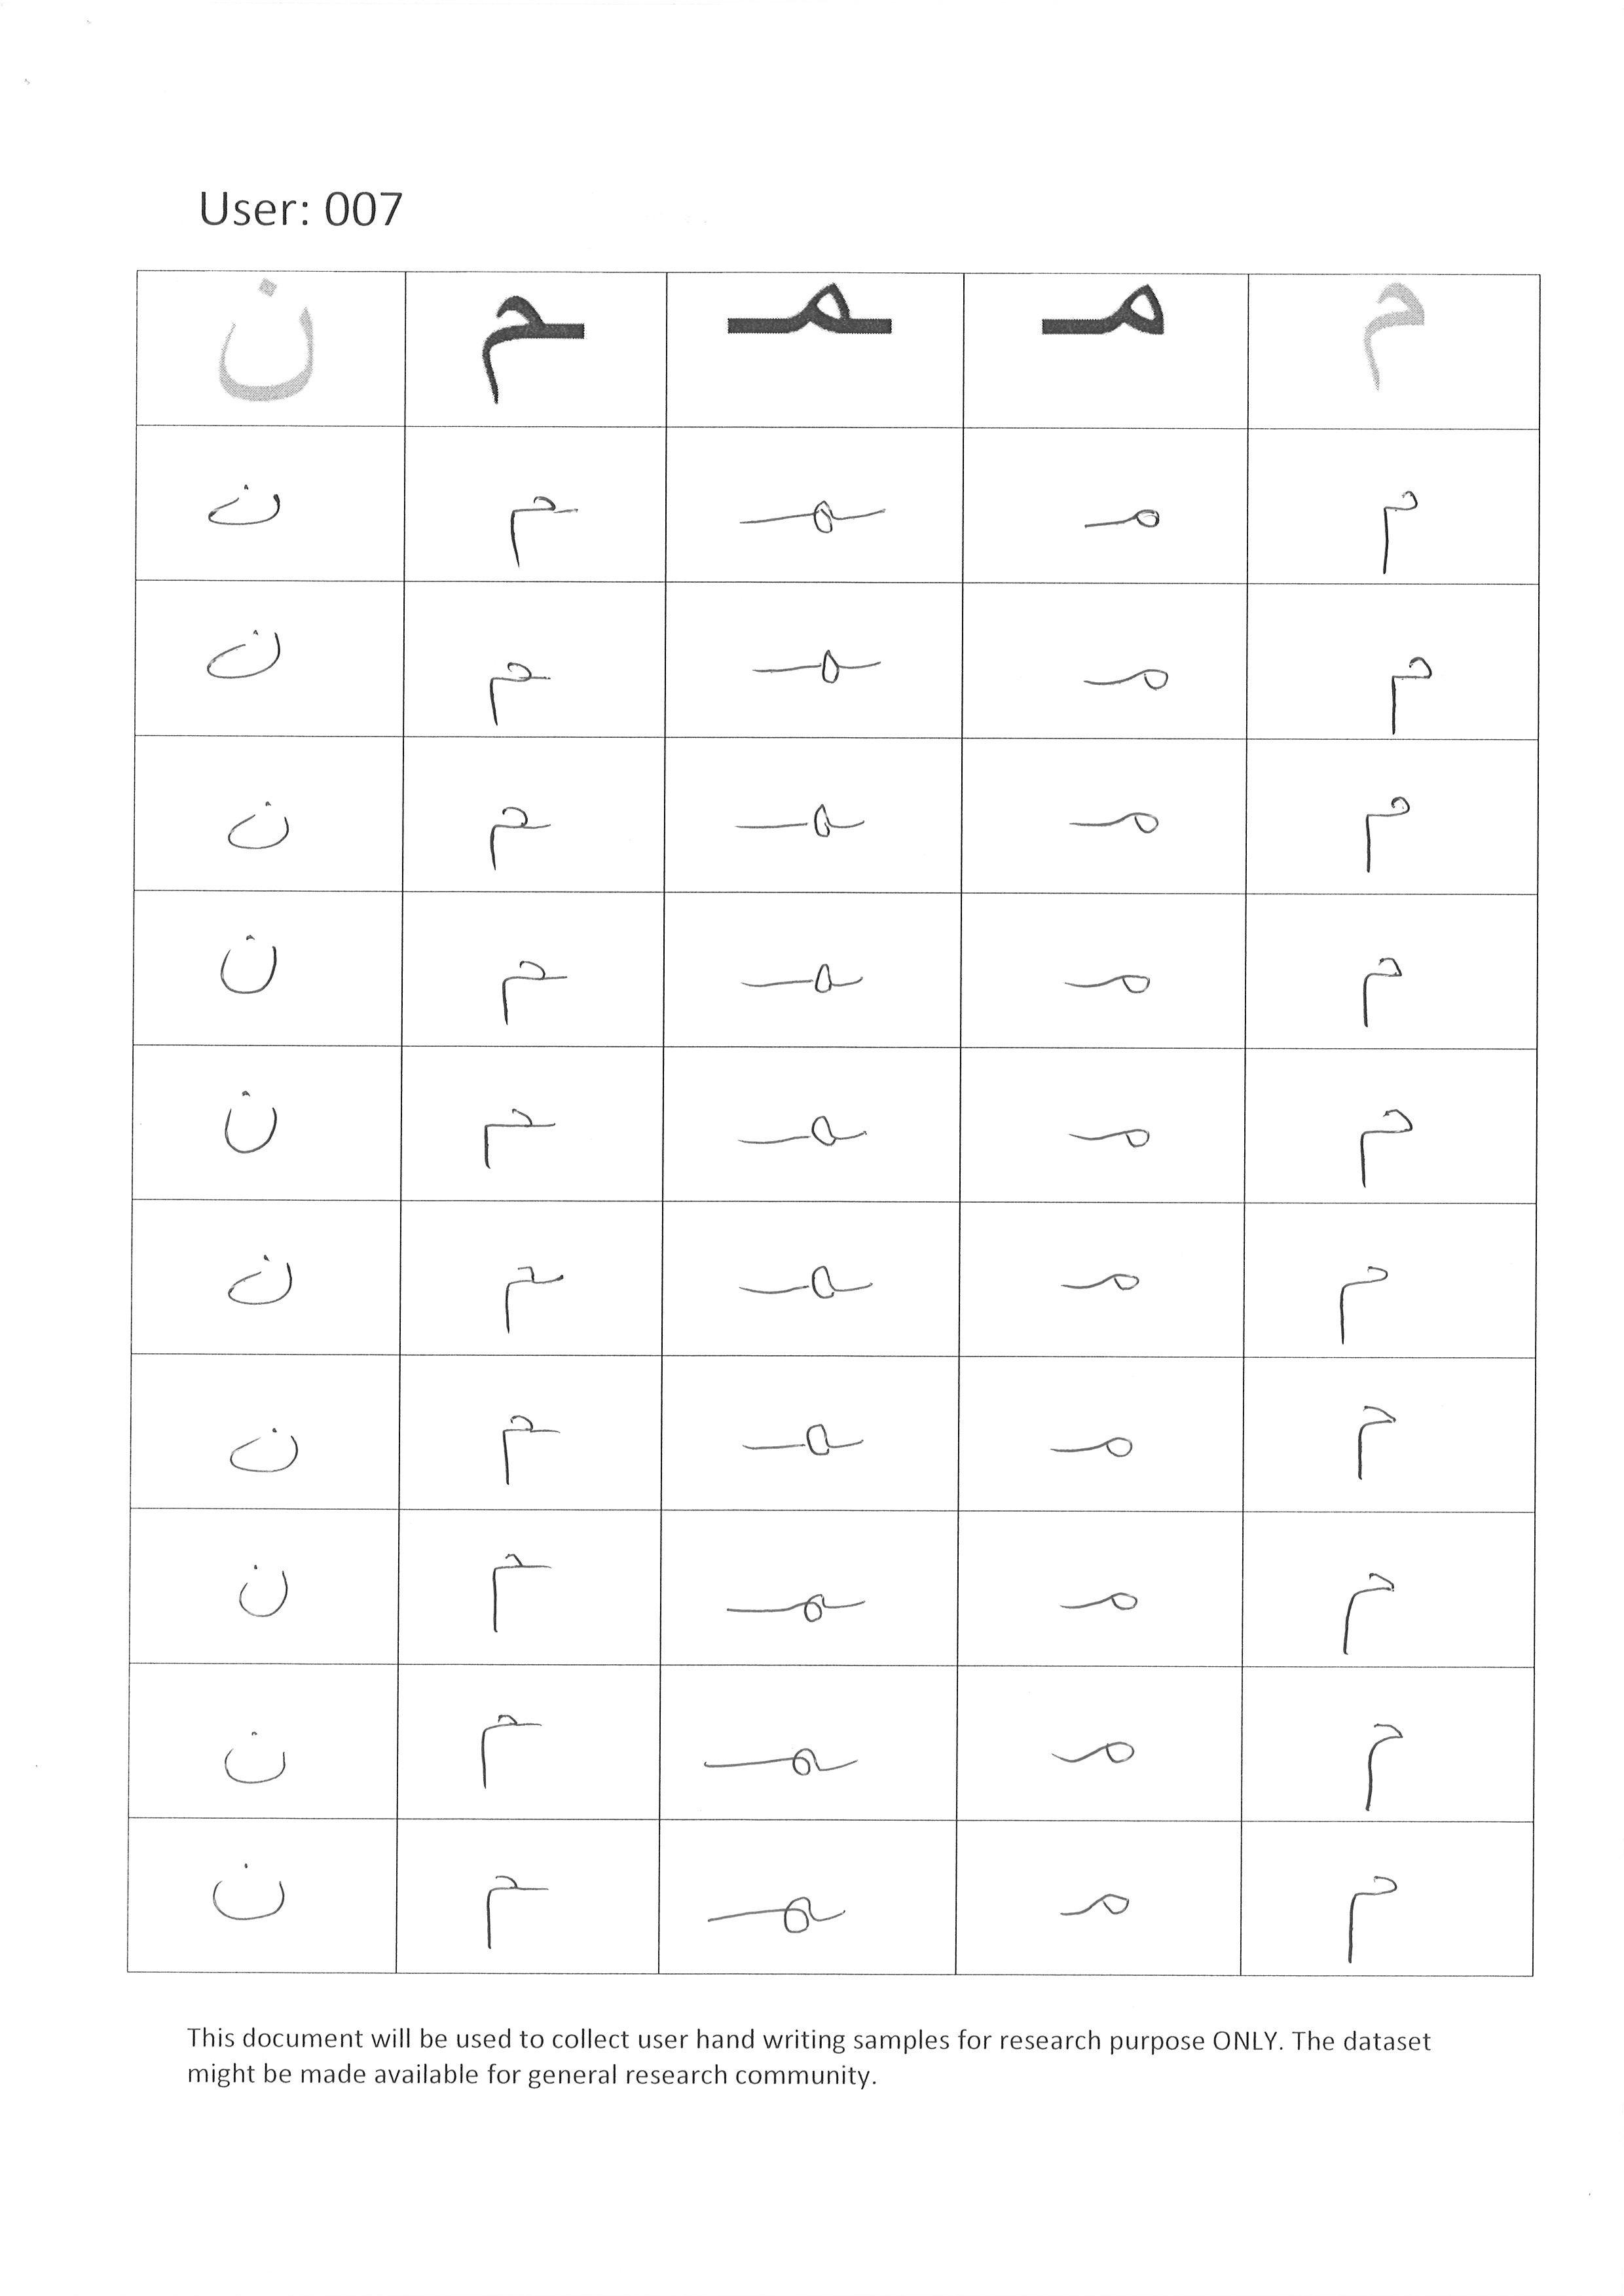 User: 007
م مـ ـمـ ـم ن
م مـ ـمـ ـم ن
م مـ ـمـ ـم ن
م مـ ـمـ ـم ن
م مـ ـمـ ـم ن
م مـ ـمـ ـم ن
م مـ ـمـ ـم ن
م مـ ـمـ ـم ن
م مـ ـمـ ـم ن
م مـ ـمـ ـم ن
م مـ ـمـ ـم ن
This document will be used to collect user hand writing samples for research purpose ONLY. The dataset
might be made available for general research community.